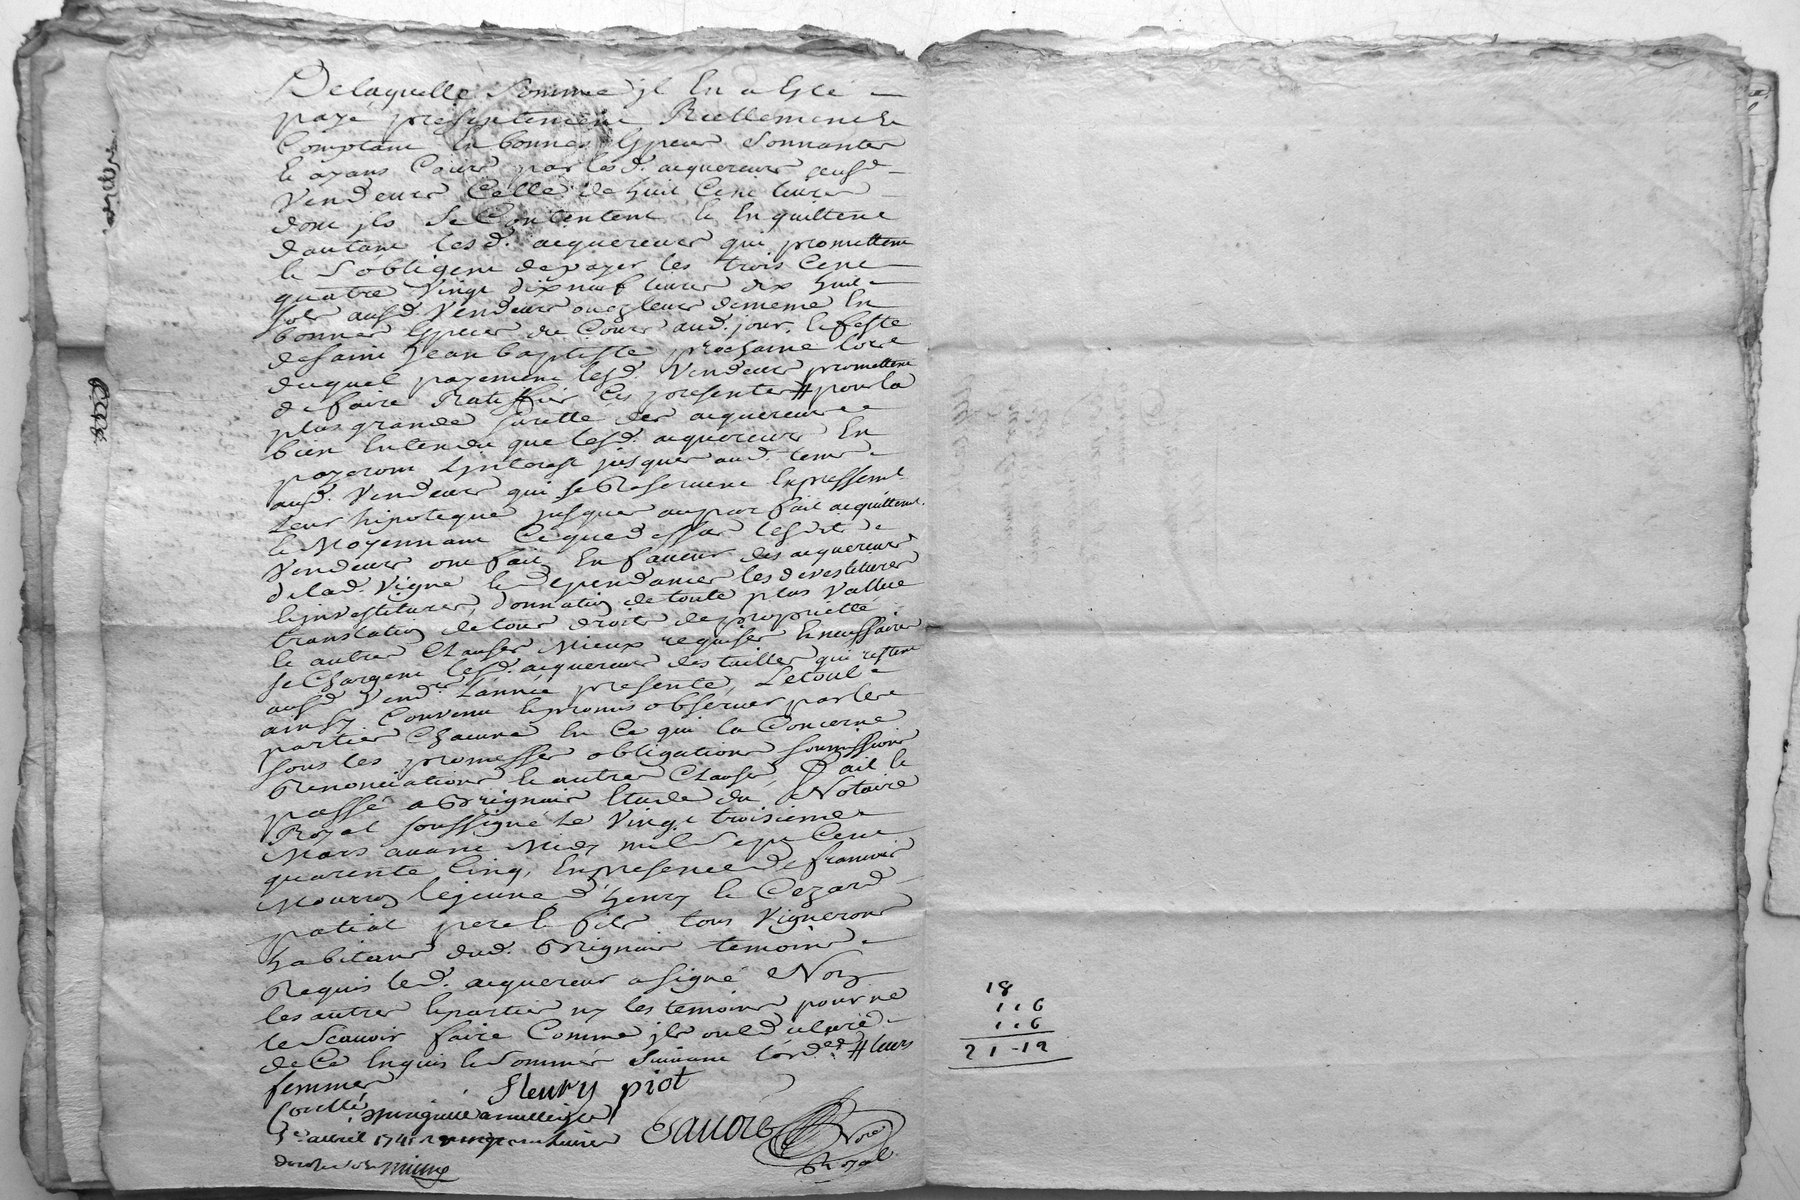 Delaquelle Somme jl En a Esté
payé presentement Reellement Et
Comptant En bonnes Especes Sonnantes
Et ayans Cours par lesd. acquereurs ausd.
Vendeurs Celle de huit Cent livres
dont jls Se Contentent Et En quittent
dautant lesd. acquereurs qui promettent
Et Sobligent de payer les trois Cent
quatre Vingt dix neuf livres dix huit
Sols ausd. Vendeurs ou es leurs de meme En
bonnes Especes de Cours aud. jour Et feste
de Saint Jean baptiste prochaine lors
duquel payement lesd. Vendeurs promettent
de faire Ratiffier Ces presentes # pour la
plus grande Surette des acquereurs
bien Entendu que lesd. acquereurs En
payeront Linterest jusques aud. tems
ausd. Vendeurs qui Se Reservent Expressemt
Leur hipoteque jusques au parfait acquittemt.
Et Moyennant Ce que dessus lesdts
Vendeurs ont fait En faveur des acquereurs
de lad. Vigne Et dependances les devestitures
Et investitures, donnation de toute plus Vallue
translation de tous droits de proprietté
Et autres Clauses Mieux requises Et necessaires
Se Chargent lesd. acquereurs des tailles qui restent
ausd. Vendrs. Lannée presente, Le tout
ainsy Convenu Et promis observer par les
parties Chacune En Ce qui la Concerne
Sous les promesses obligations Soumissions
Renonciations Et autres Clauses, fait Et
passé a Brignais Etude du Notaire
Royal Soussigné Le Vingt troisieme
Mars avant Midy mil Sept Cent
quarente Cinq, En presence de francois
Mourron lejeune d'henry Et Cezard
patiat pere Et fils tous Vignerons
habitans dud. Brignais temoins
Requis led. acquereur a Signé Non
les autres Et parties ny les temoins pour ne
le Scavoir faire Comme jls ont declaré
de Ce Enquis Et Sommés Suivant lord.ce # leurs
femmes
fleury piot
Conllé a
avril 1745
Not.re
Royal
18
1 , 6
1 , 6
21 - 12